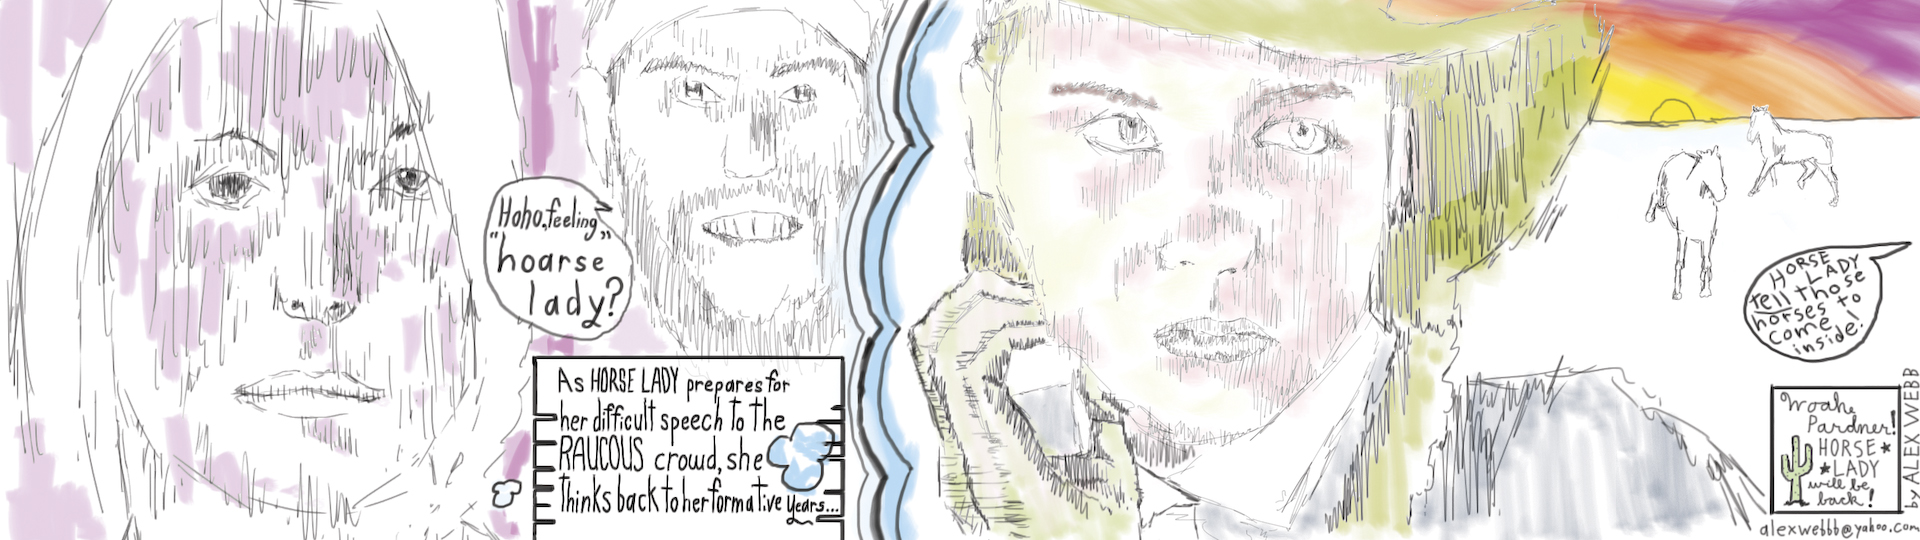 Hoho, feeling
"hoarse
lady?"
As HORSE LADY prepares for
her difficult speech to the
RAUCOUS crowd, she
thinks back to her formative years...
HORSE
LADY
tell those
horses to
come
inside!
Woahe
Pardner!
HORSE*
*LADY
will be
back!
by ALEX WEBB
alexwebbb@yahoo.com